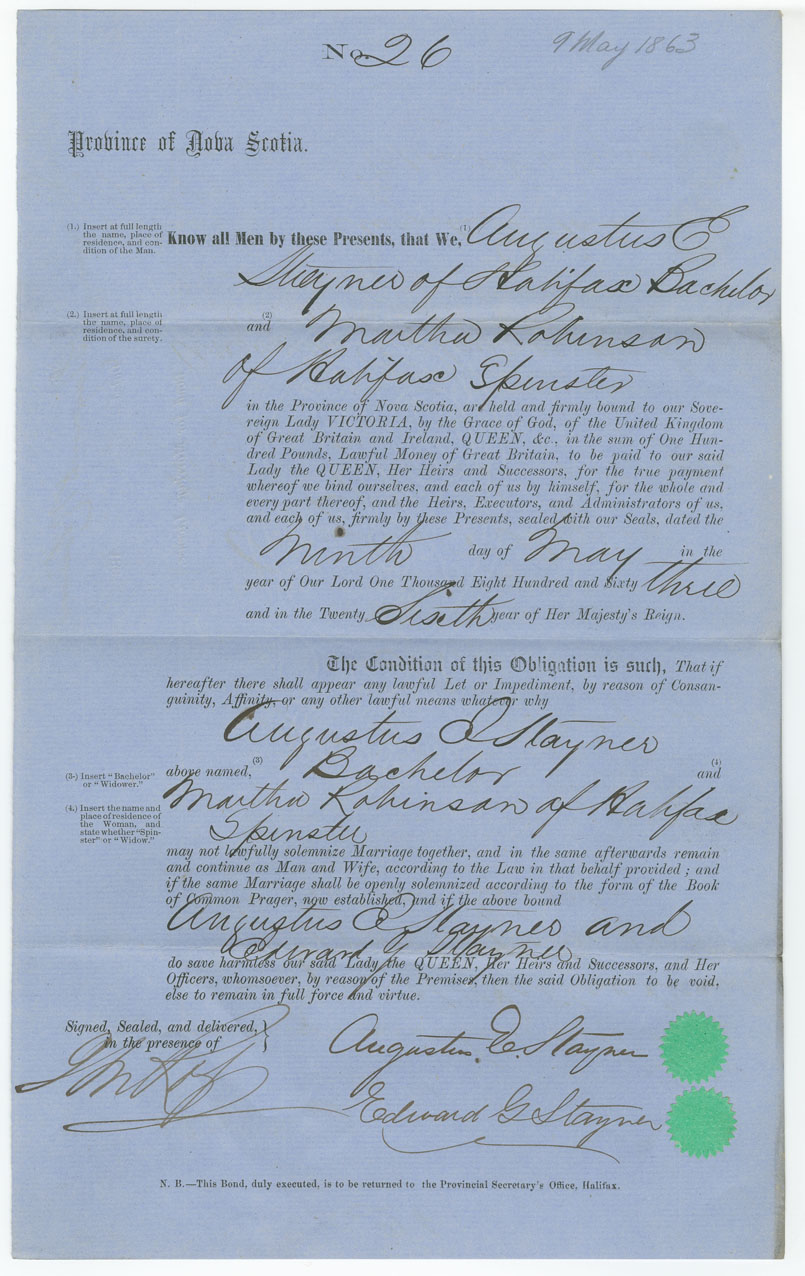 No. 26
9 May 1863
Province of Nova Scotia.
(1.) Insert at full length
the name, place of
residence, and con-
dition of the Man.
Know all Men by these Presents, that We, (1) Augustus E
Stayner of Halifax Bachelor
(2.) Insert at full length
the name, place of
residence, and con-
dition of the surety.
(2)
and Martha Robinson
of Halifax Spinster
in the Province of Nova Scotia, are held and firmly bound to our Sove-
reign Lady VICTORIA, by the Grace of God, of the United Kingdom
of Great Britain and Ireland, QUEEN, &c., in the sum of One Hun-
dred Pounds, Lawful Money of Great Britain, to be paid to our said
Lady the QUEEN, Her Heirs and Successors, for the true payment
whereof we bind ourselves, and each of us by himself, for the whole and
every part thereof, and the Heirs, Executors, and Administrators of us,
and each of us, firmly by these Presents, sealed with our Seals, dated the
ninth day of May in the
year of Our Lord One Thousand Eight Hundred and Sixty three
and in the Twenty Sixth year of Her Majesty's Reign.
The Condition of this Obligation is such, That if
hereafter there shall appear any lawful Let or Impediment, by reason of Consan-
guinity, Affinity, or any other lawful means whatever why
Augustus E Stayner
(3.) Insert "Bachelor"
or "Widower."
above named, (3) Bachelor (4) and
(4.) Insert the name and
place of residence of
the Woman, and
state whether "Spin-
ster" or "Widow."
Martha Robinson of Halifax
Spinster
may not lawfully solemnize Marriage together, and in the same afterwards remain
and continue as Man and Wife, according to the Law in that behalf provided; and
if the same Marriage shall be openly solemnized according to the form of the Book
of Common Prager, now established, and if the above bound
Augustus E Stayner and
Edward G Stayner
do save harmless our said Lady the QUEEN, Her Heirs and Successors, and Her
Officers, whomsoever, by reason of the Premises, then the said Obligation to be void,
else to remain in full force and virtue.
Signed, Sealed, and delivered,
in the presence of
Augustus. E. Stayner
Edward G Stayner
N. B.—This Bond, duly executed, is to be returned to the Provincial Secretary's Office, Halifax.